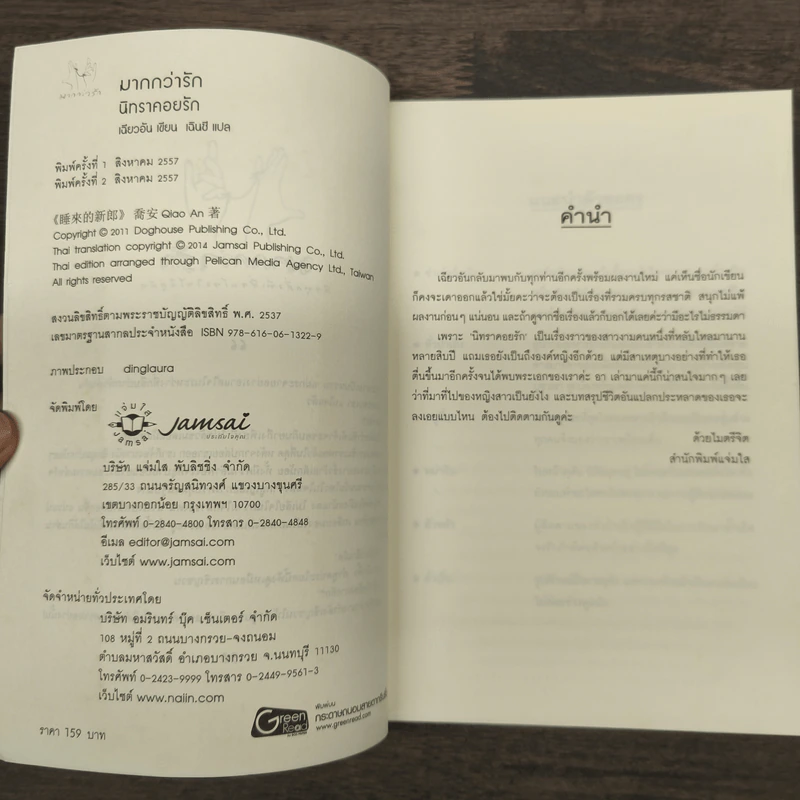 มากกว่ารัก
มากกว่ารัก
นิทราคอยรัก
เฉียวอัน เขียน เฉินซี แปล
พิมพ์ครั้งที่ 1 สิงหาคม 2557
พิมพ์ครั้งที่ 2 สิงหาคม 2557
《睡來的新郎》 喬安 Qiao An 著
Copyright © 2011 Doghouse Publishing Co., Ltd.
Thai translation copyright © 2014 Jamsai Publishing Co., Ltd.
Thai edition arranged through Pelican Media Agency Ltd., Taiwan
All rights reserved
สงวนลิขสิทธิ์ตามพระราชบัญญัติลิขสิทธิ์ พ.ศ. 2537
เลขมาตรฐานสากลประจำหนังสือ ISBN 978-616-06-1322-9
ภาพประกอบ dinglaura
จัดพิมพ์โดย
แจ่มใส
Jamsai
Jamsai
ประทับใจคุณ
บริษัท แจ่มใส พับลิชชิ่ง จำกัด
285/33 ถนนจรัญสนิทวงศ์ แขวงบางขุนศรี
เขตบางกอกน้อย กรุงเทพฯ 10700
โทรศัพท์ 0-2840-4800 โทรสาร 0-2840-4848
อีเมล editor@jamsai.com
เว็บไซต์ www.jamsai.com
จัดจำหน่ายทั่วประเทศโดย
บริษัท อมรินทร์ บุ๊ค เซ็นเตอร์ จำกัด
108 หมู่ที่ 2 ถนนบางกรวย-จงถนอม
ตำบลมหาสวัสดิ์ อำเภอบางกรวย จ.นนทบุรี 11130
โทรศัพท์ 0-2423-9999 โทรสาร 0-2449-9561-3
เว็บไซต์ www.naiin.com
Green
Read
พิมพ์บน
กระดาษถนอมสายตากรีนรี้ด
www.greenread.com
ราคา 159 บาท
คำนำ
เฉียวอันกลับมาพบกับทุกท่านอีกครั้งพร้อมผลงานใหม่ แค่เห็นชื่อนักเขียน
ก็คงจะเดาออกแล้วใช่มั้ยคะว่าจะต้องเป็นเรื่องที่รวมครบทุกรสชาติ สนุกไม่แพ้
ผลงานก่อนๆ แน่นอน และถ้าดูจากชื่อเรื่องแล้วก็บอกได้เลยค่ะว่ามีอะไรไม่ธรรมดา
เพราะ 'นิทราคอยรัก' เป็นเรื่องราวของสาวงามคนหนึ่งที่หลับใหลมานาน
หลายสิบปี แถมเธอยังเป็นถึงองค์หญิงอีกด้วย แต่มีสาเหตุบางอย่างที่ทำให้เธอ
ตื่นขึ้นมาอีกครั้งจนได้พบพระเอกของเราค่ะ อา เล่ามาแค่นี้ก็น่าสนใจมากๆ เลย
ว่าที่มาที่ไปของหญิงสาวเป็นยังไง และบทสรุปชีวิตอันแปลกประหลาดของเธอจะ
ลงเอยแบบไหน ต้องไปติดตามกันดูค่ะ
ด้วยไมตรีจิต
สำนักพิมพ์แจ่มใส